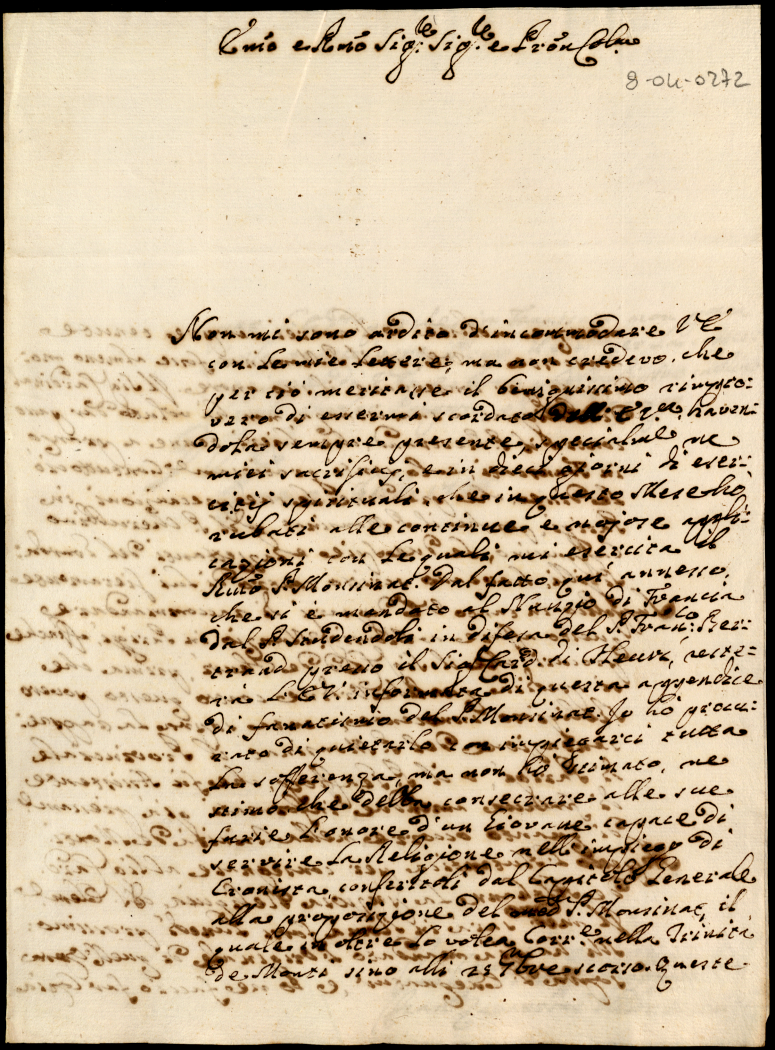 Emō e Rmō Sig.re Sig.re e Prōn Colmo
8-04-0272
Non mi sono ardito d'incommodare V E
con le mie lettere, ma non credevo, che
per ciò meritasse il benignissimo rimpro-
vero di essermi scordato dell' haven-
dola sempre presente, specialme ne
miei sacrificij, e in dieci giorni di eser-
citij spirituali, che in questo Mese hò
rubati alle continue e nojose appli-
cazioni con le quali mi esercita il
Rmō P. Monsinat. Dal fatto quì annesso,
che si è mandato al Nunzio di Francia
dal P. in difesa del P. Fran.co Ber-
trand presso il Sig. Card. di Fleuri, reste-
rà l'E.V. informata di questa appendice
di fanatismo del P. Monsinat. Io hò procu-
rato di quietarlo con impiegarci tutta
la sofferenza, ma non hò stimato, ne
stimo che debba consecrare alle sue
furie l'onore d'un Giovane capace di
servire la Religione nell' impiego di
Cronista conferitoli dal Capitolo Generale
alla proposizione del med.o P. Monsinat, il
quale in oltre lo volea Corr.e nella Trinità
de Monti sino alli 25 9bre scorso. Queste